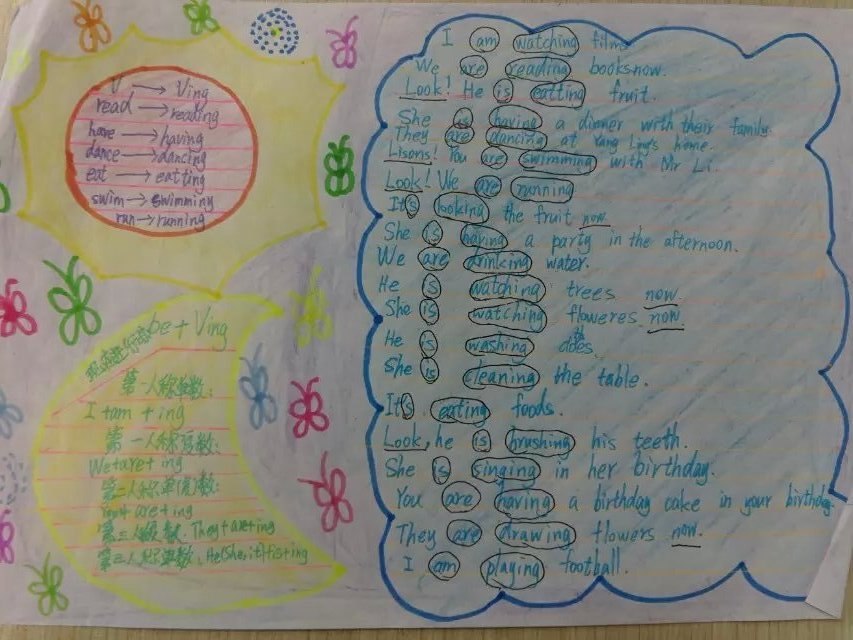 V → Ving
read → reading
have → having
dance → dancing
eat → eatting
swim → swimming
run → running
现在进行时 be + Ving
第一人称单数:
I + am + ing
第一人称复数:
We + are + ing
第二人称单(复)数:
You + are + ing
第三人称复数. They + are + ing
第三人称单数. He(She, it) + is + ing
I am watching film
We are reading books now.
Look! He is eatting fruit.
She is having a dinner with their family
They are dancing at Yang Ling's home.
Lisons! You are swimming with Mr Li.
Look! We are running
It's looking the fruit now.
She is having a party in the afternoon.
We are drinking water.
He is watching trees now.
She is watching floweres now.
He is washing
She is cleaning the table.
It's eating foods.
Look, he is brushing his teeth.
She is singing in her birthday.
You are having a birthday cake in your birthday.
They are drawing flowers now.
I am playing football.